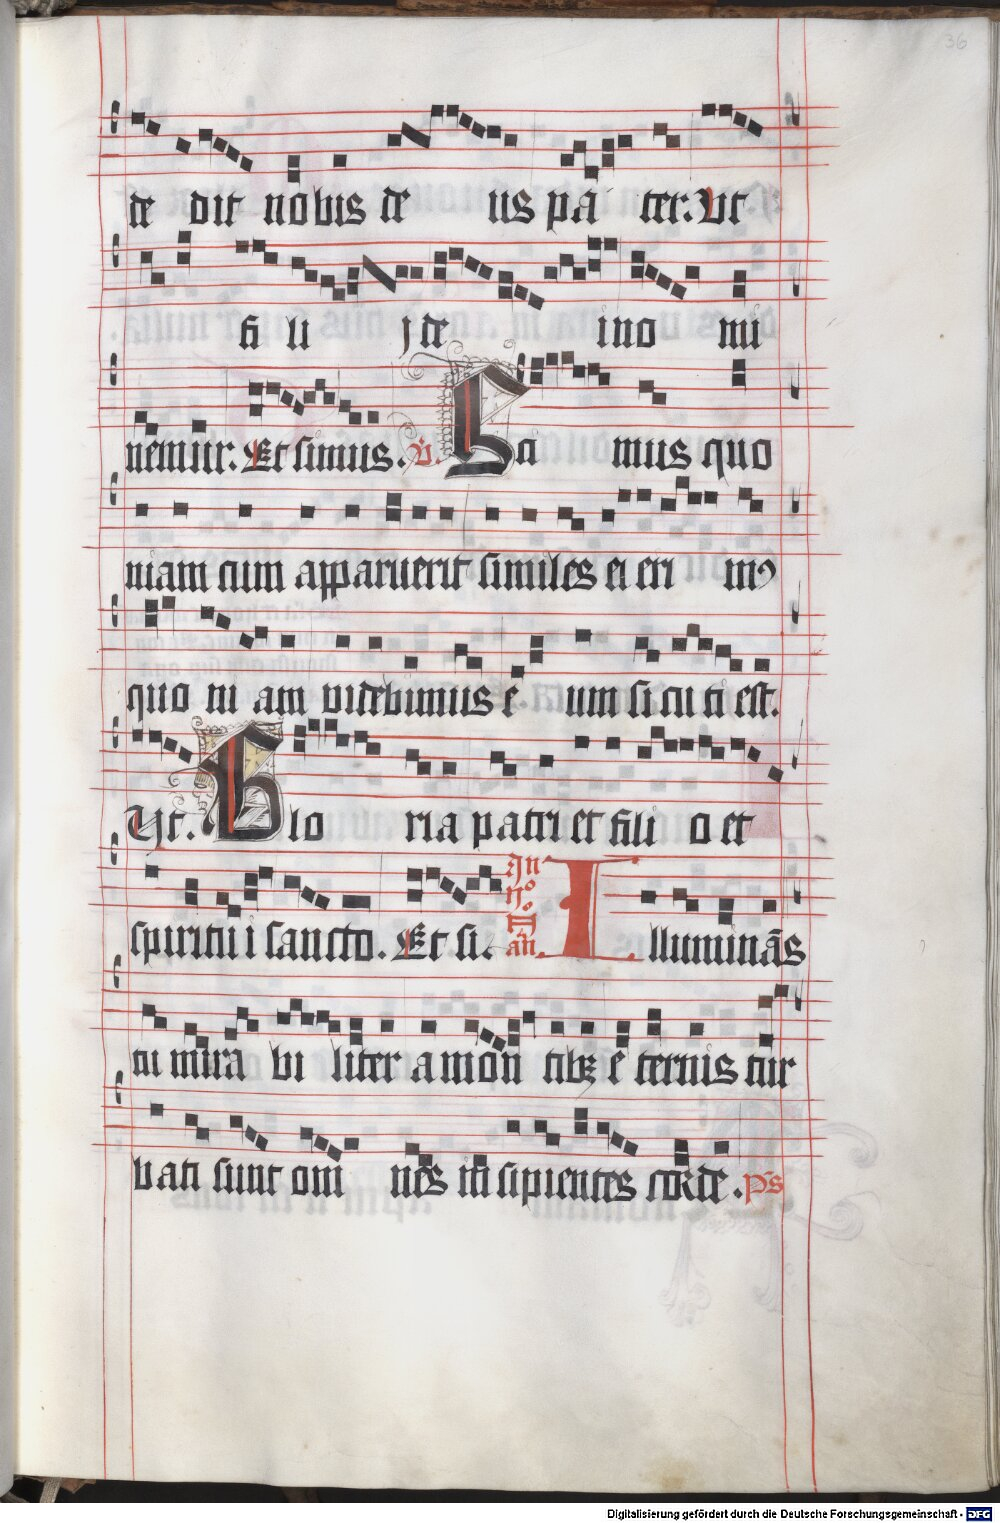 36
de dit nobis de us pa ter. Ut
fi li j de i no mi
nemur. Et simus. V. Sci mus quo
niam cum apparuerit similes ei eri mꝰ
quo ni am videbimus e um si cu ti est.
Ut. Glo ria patri et fili o et
spiritu i sancto. Et si. In
iijo. no. an̄. Illuminās
tu mira bi liter a mon tibꝫ e ternis tur
bati sunt om̄ nes in sipientes corde. p̄s
Digitalisierung gefördert durch die Deutsche Forschungsgemeinschaft - DFG